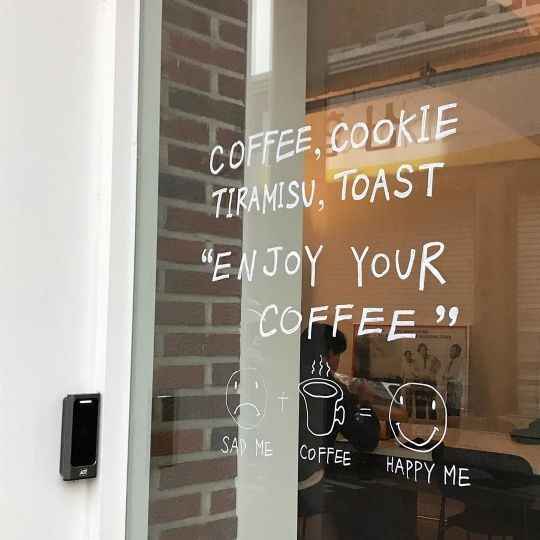 COFFEE, COOKIE
TIRAMISU, TOAST
“ENJOY YOUR
COFFEE”
+ =
SAD ME COFFEE HAPPY ME